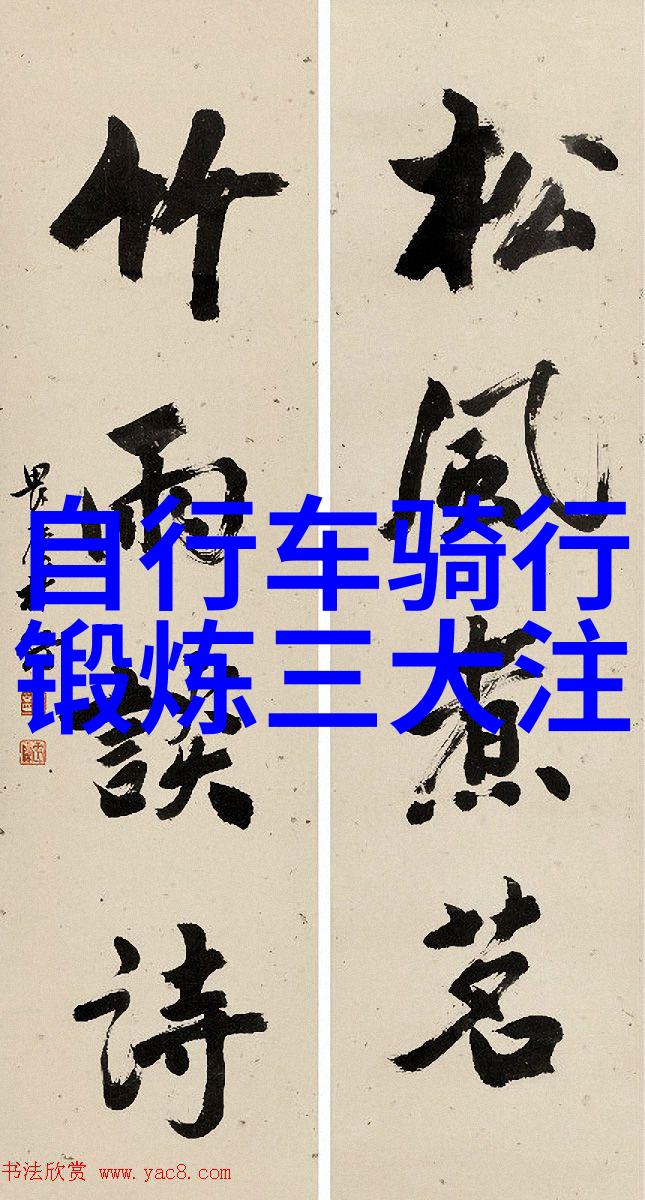 松風煮茗
竹雨談詩
自行车骑行
锻炼三大注
书法欣赏 www.yac8.com